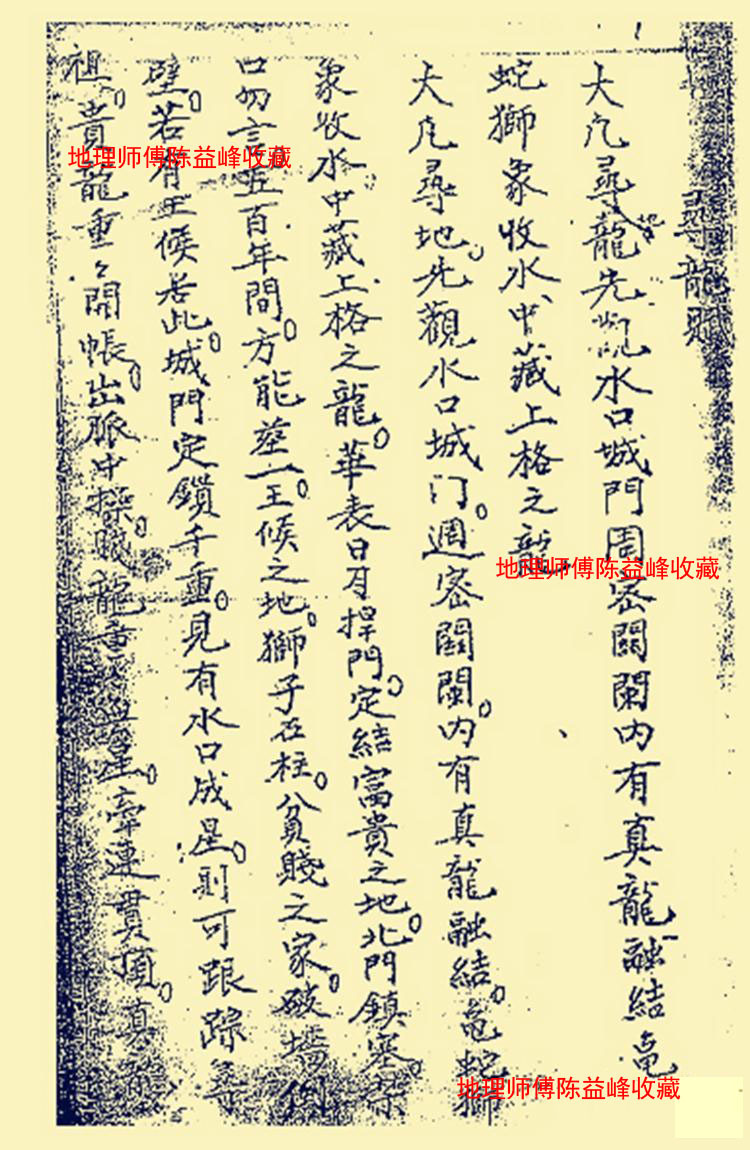 尋龍賦
大凡尋龍先覌水口城門周密関闌内有真龍融結亀
蛇獅象收水中藏上格之龍
大凡尋地先觀水口城门週密関闌内有真龍融結亀蛇獅
象收水中藏上格之龍華表日月捍門定結富貴之地北門鎮塞
口勿言五百年間方能莝一王候之地獅子石柱貧賤之家破墙倒
壁若有王候若此城門定鎖千重見有水口成星則可跟踪
祖貴龍重々開帳出脈中賤龍牵連貫頂真
地理师傅陈益峰收藏
地理师傅陈益峰收藏
地理师傅陈益峰收藏